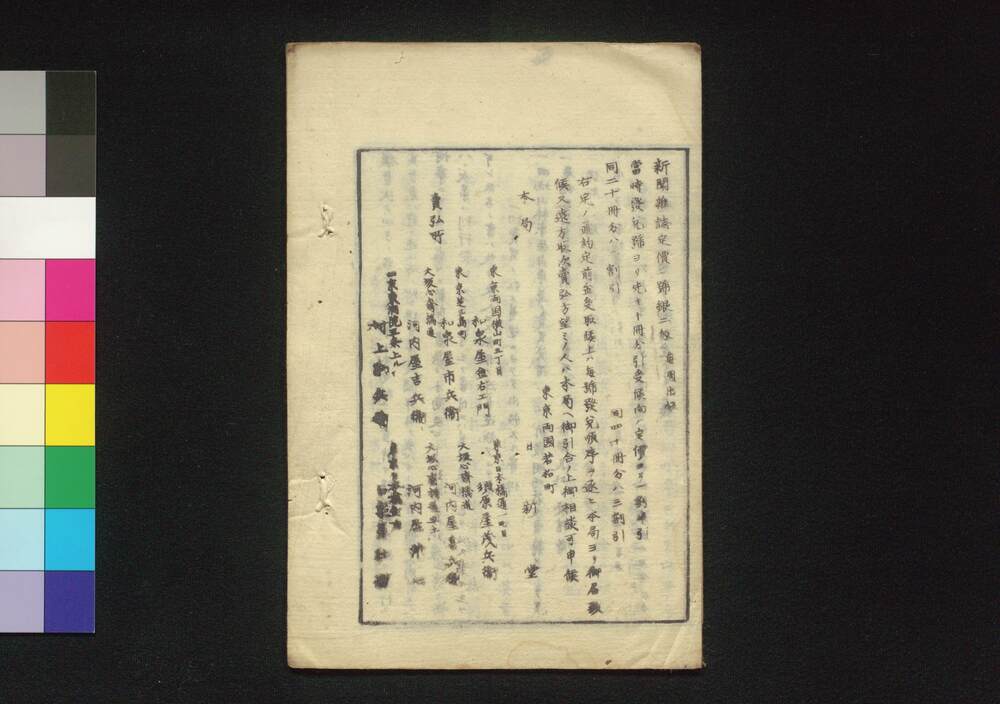 新聞雜誌定價一號銀三匁 毎月出板
當時發兌號ヨリ先キ十冊分引受候向ハ定價ヨリ一割半引
同二十冊分ハ 割引 同四十冊分ハ三割引
右定ノ通約定前金受取候上ハ毎號發兌順序ヲ逐ヒ本局ヨリ御届
候又遠方取次賣弘方望ミノ人ハ本局ヘ御引合ノ上御相談可申候
東京両國若松町
本局 日新堂
東京両國横山町三丁目 東京日本橋通一丁目
和泉屋金右エ門 須原屋茂兵衛
賣弘所 東京芝三島町 大坂心齋橋通
和泉屋市兵衛 河内屋喜兵衛
大坂心齋橋通 大坂心齋橋通
河内屋吉兵衛 河内屋
東洞院三条上ル
村上勘兵衛